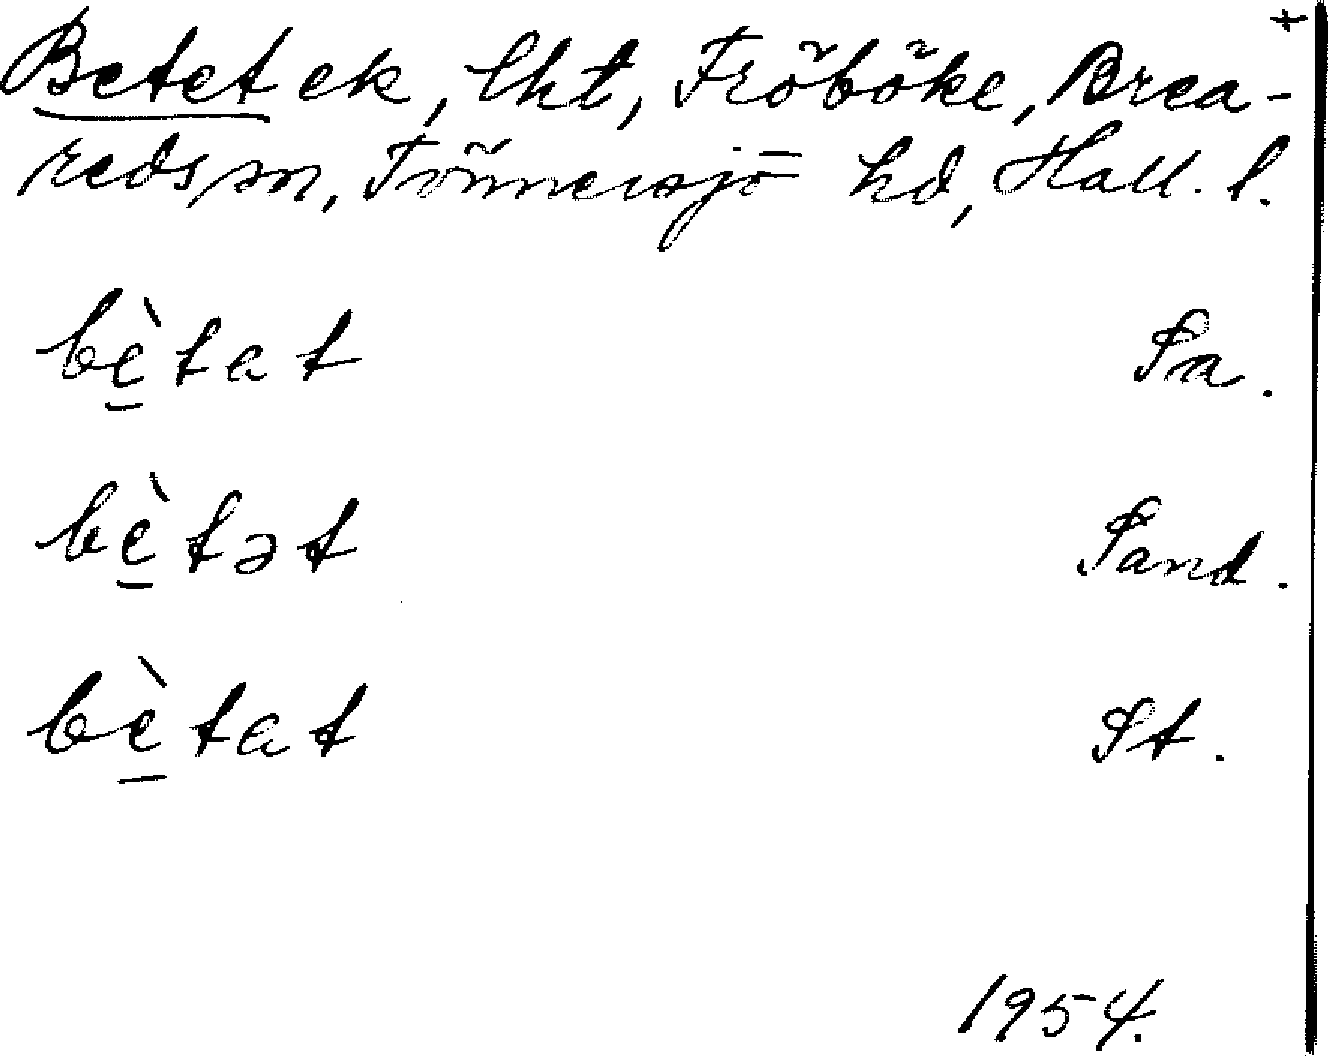 +
Betet ek, lht, Fröböke, Brea-
reds sn, Tönnersjö hd, Hall. l.
bè̱tat Sa.
bè̱tət Sand.
bè̱tat St.
1954.